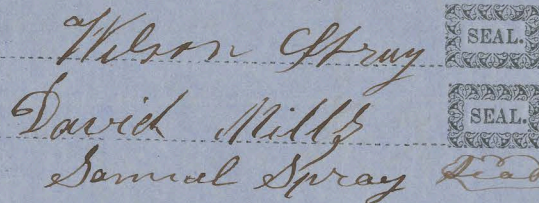 Wilson Spray SEAL.
David Mills SEAL.
Samuel Spray Seal